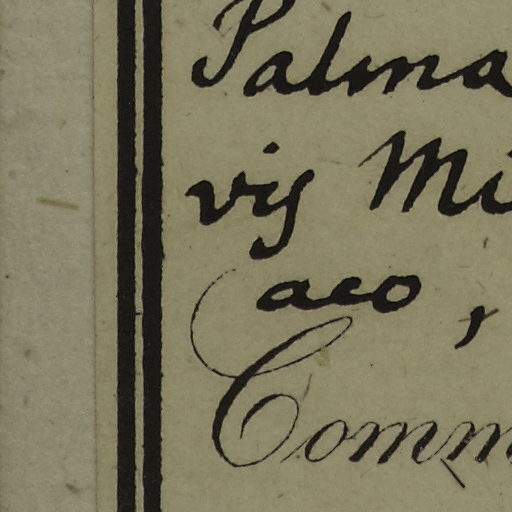 Palma
vis Mi
aco,
Comm